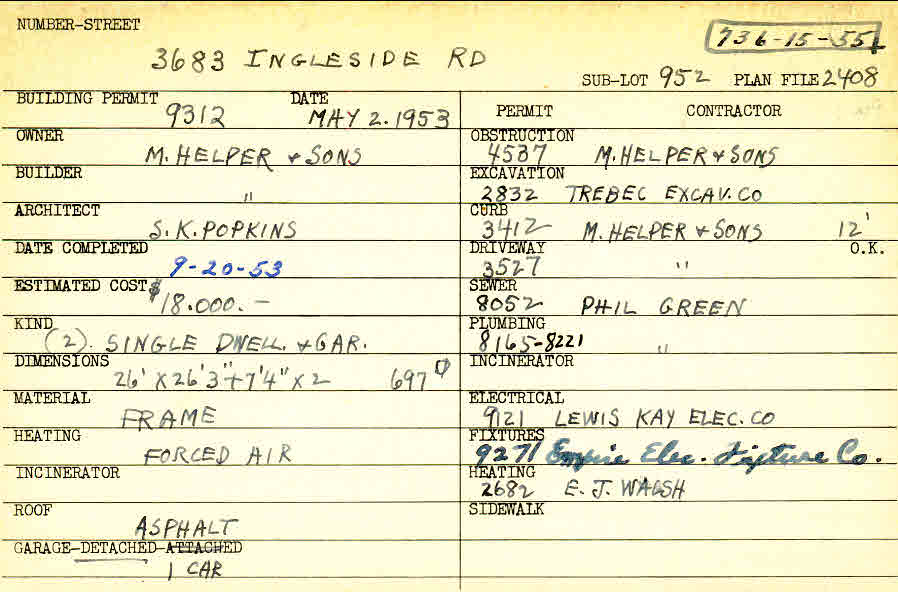 NUMBER-STREET
736-15-55
3683 INGLESIDE RD
SUB-LOT 952 PLAN FILE 2408
BUILDING PERMIT DATE
9312 MAY 2.1953
OWNER
M. HELPER + SONS
BUILDER
"
ARCHITECT
S.K. POPKINS
DATE COMPLETED
9-20-53
ESTIMATED COST $
18.000.-
KIND
(2). SINGLE DWELL. + GAR.
DIMENSIONS
26' X 26'3" + 7'4" X 2 697
MATERIAL
FRAME
HEATING
FORCED AIR
INCINERATOR
ROOF
ASPHALT
GARAGE-DETACHED-ATTACHED
1 CAR
PERMIT CONTRACTOR
OBSTRUCTION
4537 M. HELPER + SONS
EXCAVATION
2832 TREBEC EXCAV. CO
CURB
3412 M. HELPER + SONS 12'
DRIVEWAY O.K.
3527 "
SEWER
8052 PHIL GREEN
PLUMBING
8165-8221 "
INCINERATOR
ELECTRICAL
9121 LEWIS KAY ELEC. CO
FIXTURES
9271 Empire Elec. Fixture Co.
HEATING
2682 E. J. WALSH
SIDEWALK